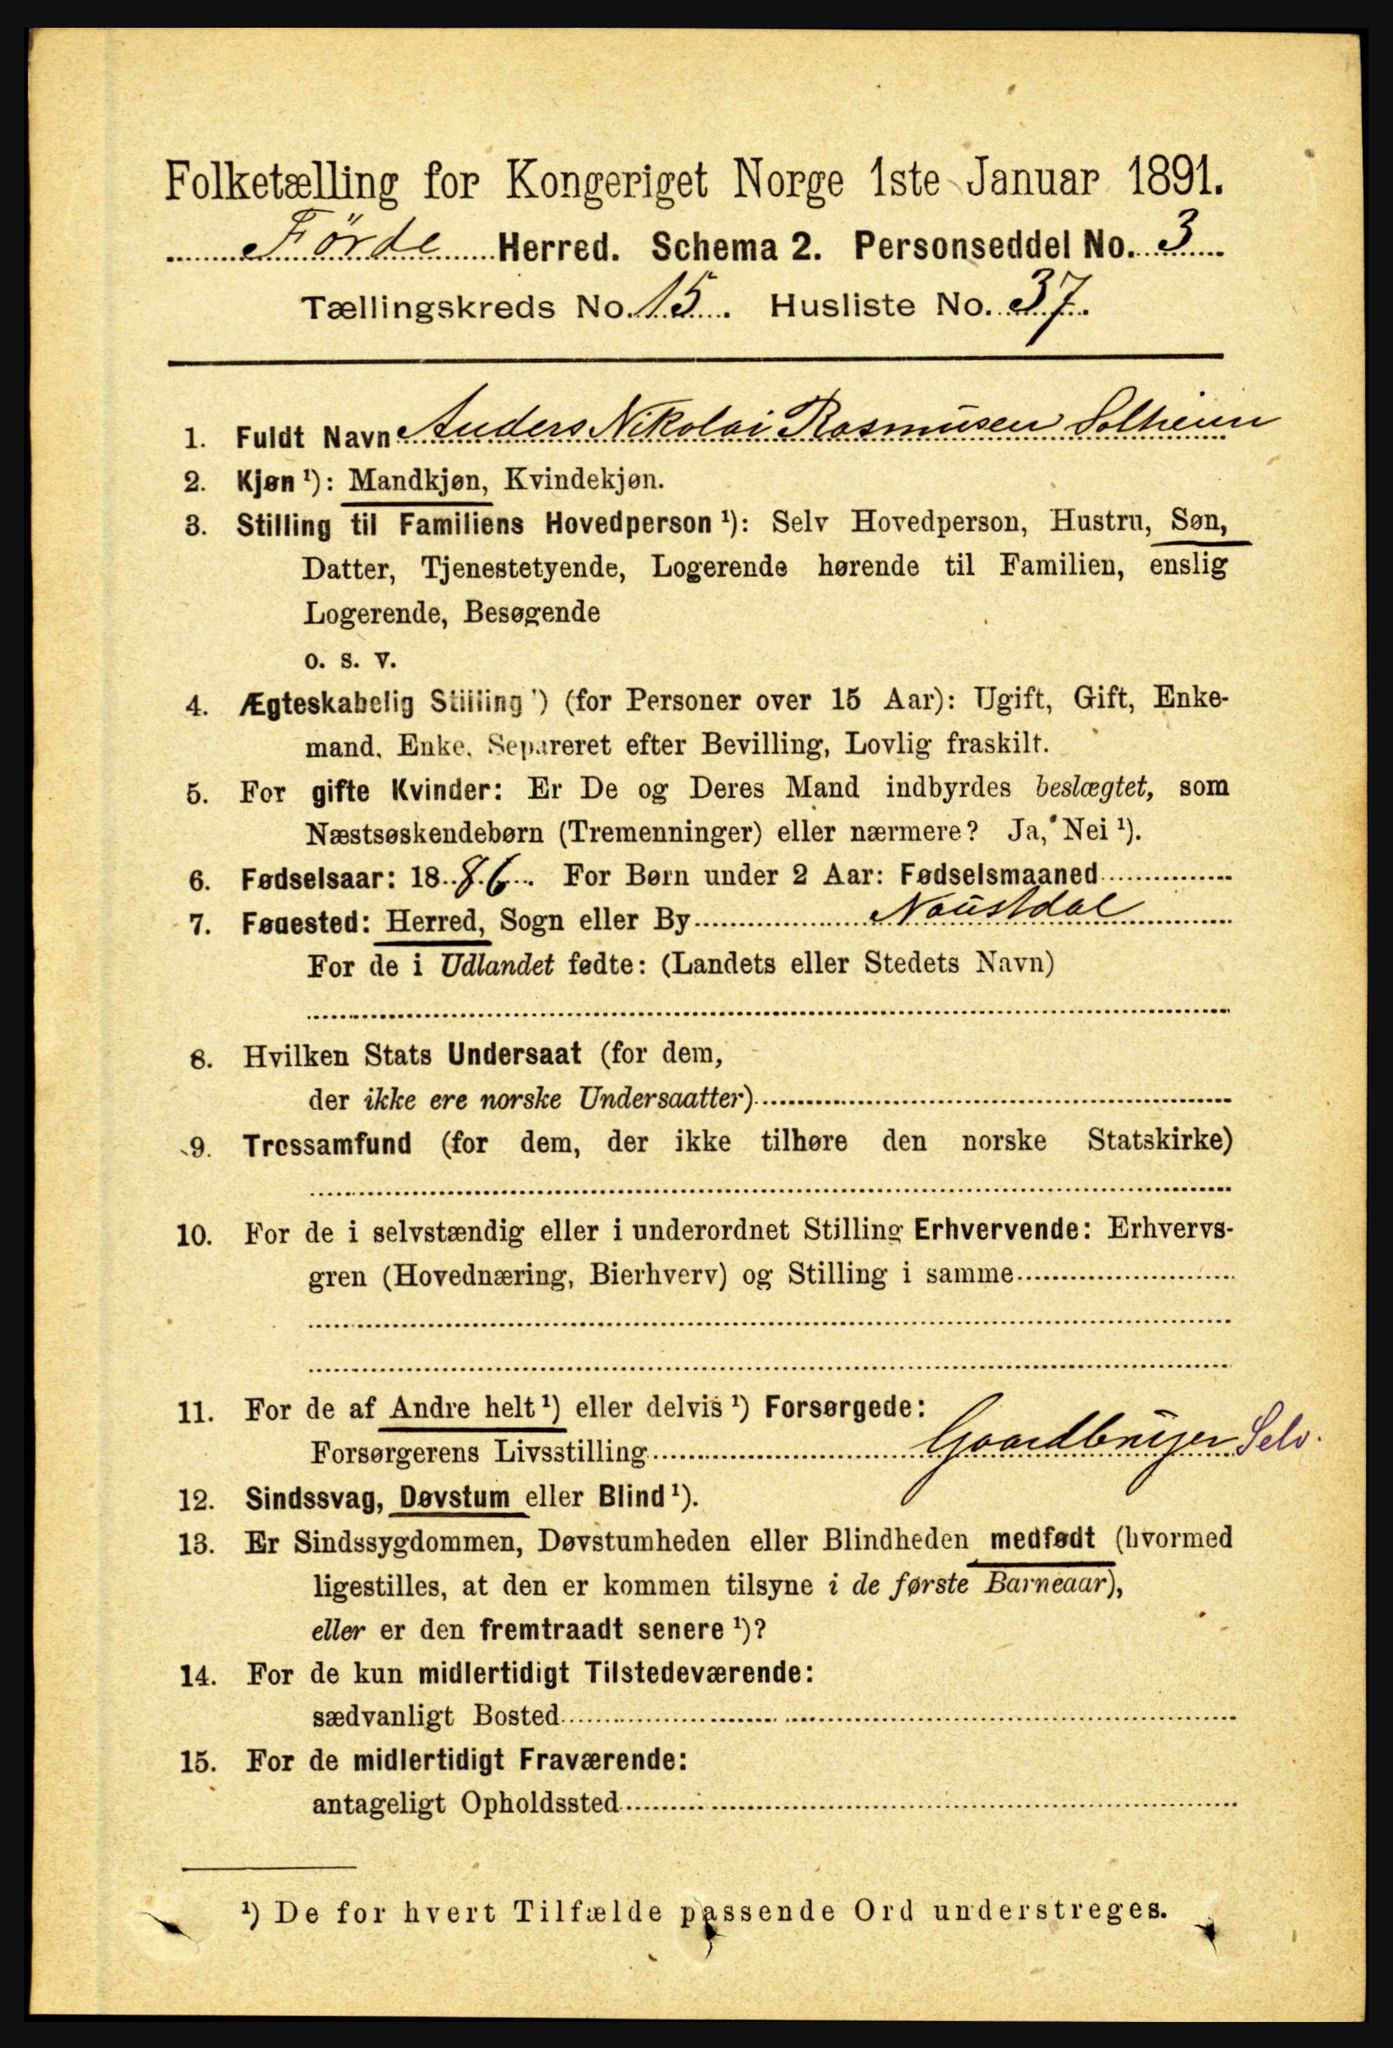 Folketælling for Kongeriget Norge 1ste Januar 1891.
Förde Herred. Schema 2. Personseddel No. 3
Tællingskreds No. 15. Husliste No. 37.
1. Fuldt Navn Anders Nikolai Rasmusen Solheim
2. Kjøn ¹): Mandkjøn, Kvindekjøn.
3. Stilling til Familiens Hovedperson ¹): Selv Hovedperson, Hustru, Søn,
Datter, Tjenestetyende, Logerende hørende til Familien, enslig
Logerende, Besøgende
o. s. v.
4. Ægteskabelig Stilling ¹) (for Personer over 15 Aar): Ugift, Gift, Enke-
mand, Enke, Separeret efter Bevilling, Lovlig fraskilt.
5. For gifte Kvinder: Er De og Deres Mand indbyrdes beslægtet, som
Næstsøskendebørn (Tremenninger) eller nærmere? Ja, Nei ¹).
6. Fødselsaar: 1886. For Børn under 2 Aar: Fødselsmaaned
7. Føuested: Herred, Sogn eller By Naustdal
For de i Udlandet fødte: (Landets eller Stedets Navn)
8. Hvilken Stats Undersaat (for dem,
der ikke ere norske Undersaatter)
9. Trossamfund (for dem, der ikke tilhøre den norske Statskirke)
10. For de i selvstændig eller i underordnet Stilling Erhvervende: Erhvervs-
gren (Hovednæring, Bierhverv) og Stilling i samme
11. For de af Andre helt ¹) eller delvis ¹) Forsørgede:
Forsørgerens Livsstilling Gaardbruger Selv.
12. Sindssvag, Døvstum eller Blind ¹).
13. Er Sindssygdommen, Døvstumheden eller Blindheden medfødt (hvormed
ligestilles, at den er kommen tilsyne i de første Barneaar),
eller er den fremtraadt senere ¹)?
14. For de kun midlertidigt Tilstedeværende:
sædvanligt Bosted
15. For de midlertidigt Fraværende:
antageligt Opholdssted
¹) De for hvert Tilfælde passende Ord understreges.